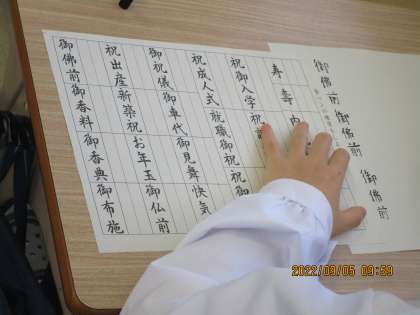 御佛前 御佛前 御佛前
寿 壽 内
祝御入学 祝
祝成人式 就職御祝 祝御
御祝儀 御車代 御見舞 快気
祝出産 新築祝 お年玉 御仏前
御佛前 御香料 御香典 御布施
2022/09/05 09:59